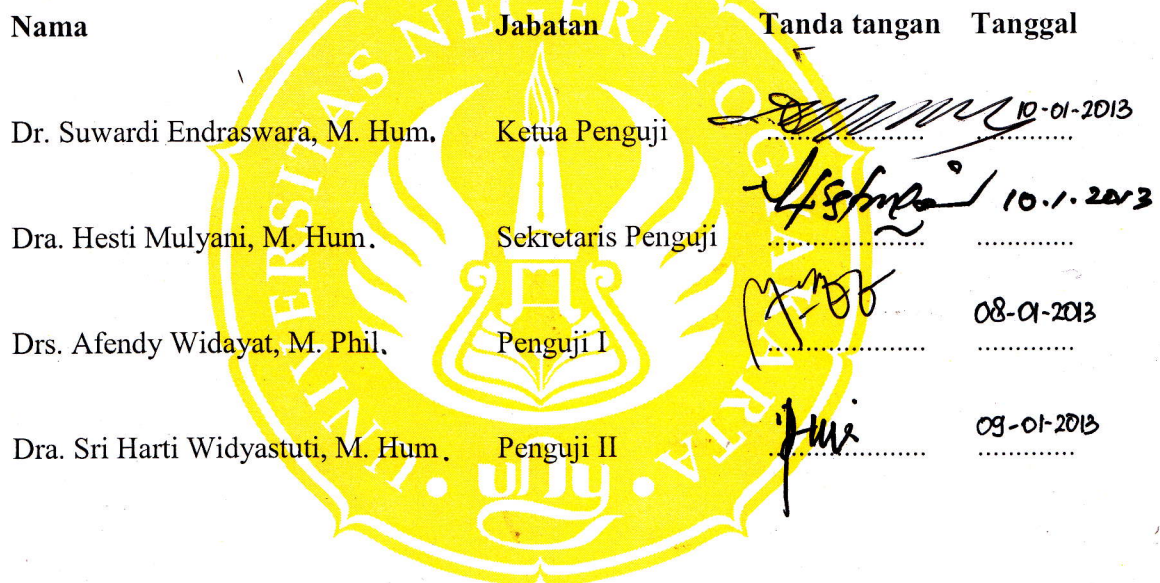 Nama Jabatan Tanda tangan Tanggal
Dr. Suwardi Endraswara, M. Hum. Ketua Penguji 10-01-2013
Dra. Hesti Mulyani, M. Hum. Sekretaris Penguji 10.1.2013
Drs. Afendy Widayat, M. Phil. Penguji I 08-01-2013
Dra. Sri Harti Widyastuti, M. Hum. Penguji II 09-01-2013
UNIVERSITAS NEGERI YOGYAKARTA
uny